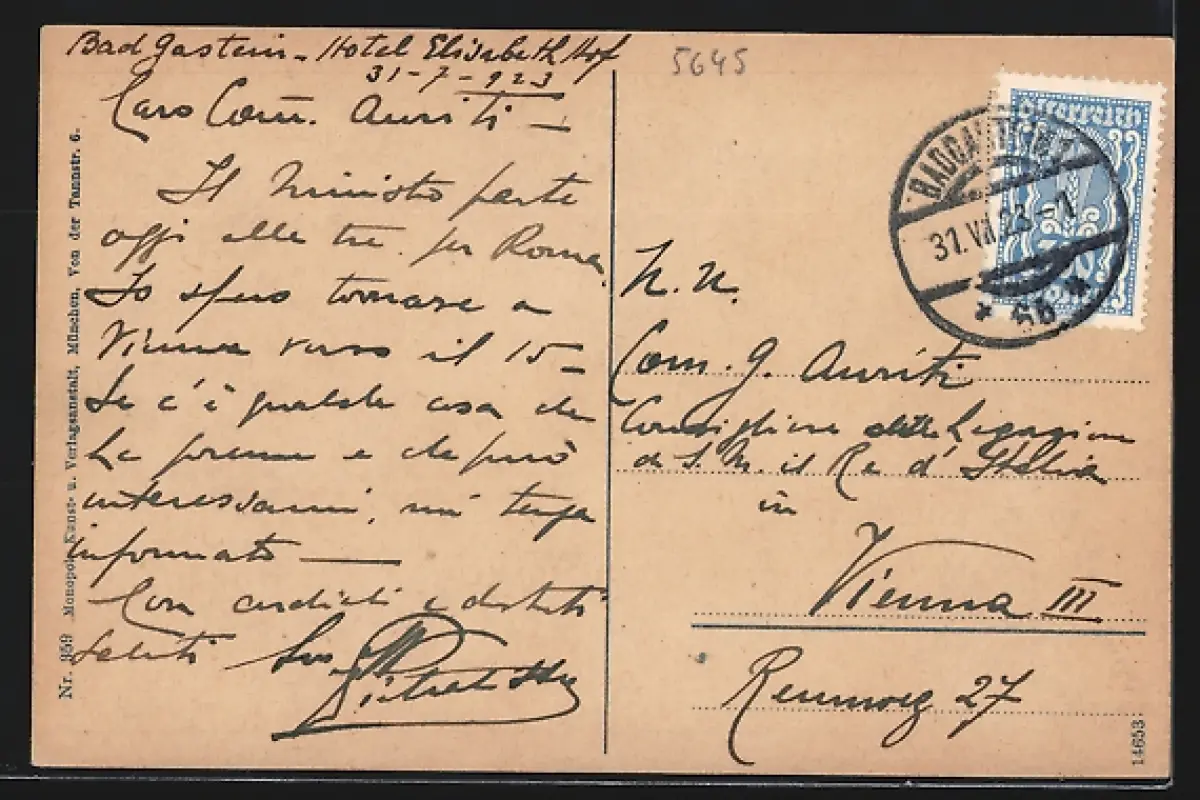 Bad Gastein - Hotel Elisabeth Hof
31-7-923
5645
Caro Com. Auriti -
Il Ministro parte
oggi alle tre per Roma.
Io spero tornare a
Vienna verso il 15 -
Se c'è qualche cosa che
La preme e che può
interessarmi, mi tenga
informato -
Con cordiali e distinti
saluti Suo
österreich
BADGASTEIN 1
31.VII.23 - 1
* 6b *
N. N.
Com. G. Auriti
Consigliere della Legazione
di S. M. il Re d'Italia
in
Vienna III
Rennweg 27
Nr. 359 Monopol Kunst- u. Verlagsanstalt, München, Von der Tannstr. 6.
14653